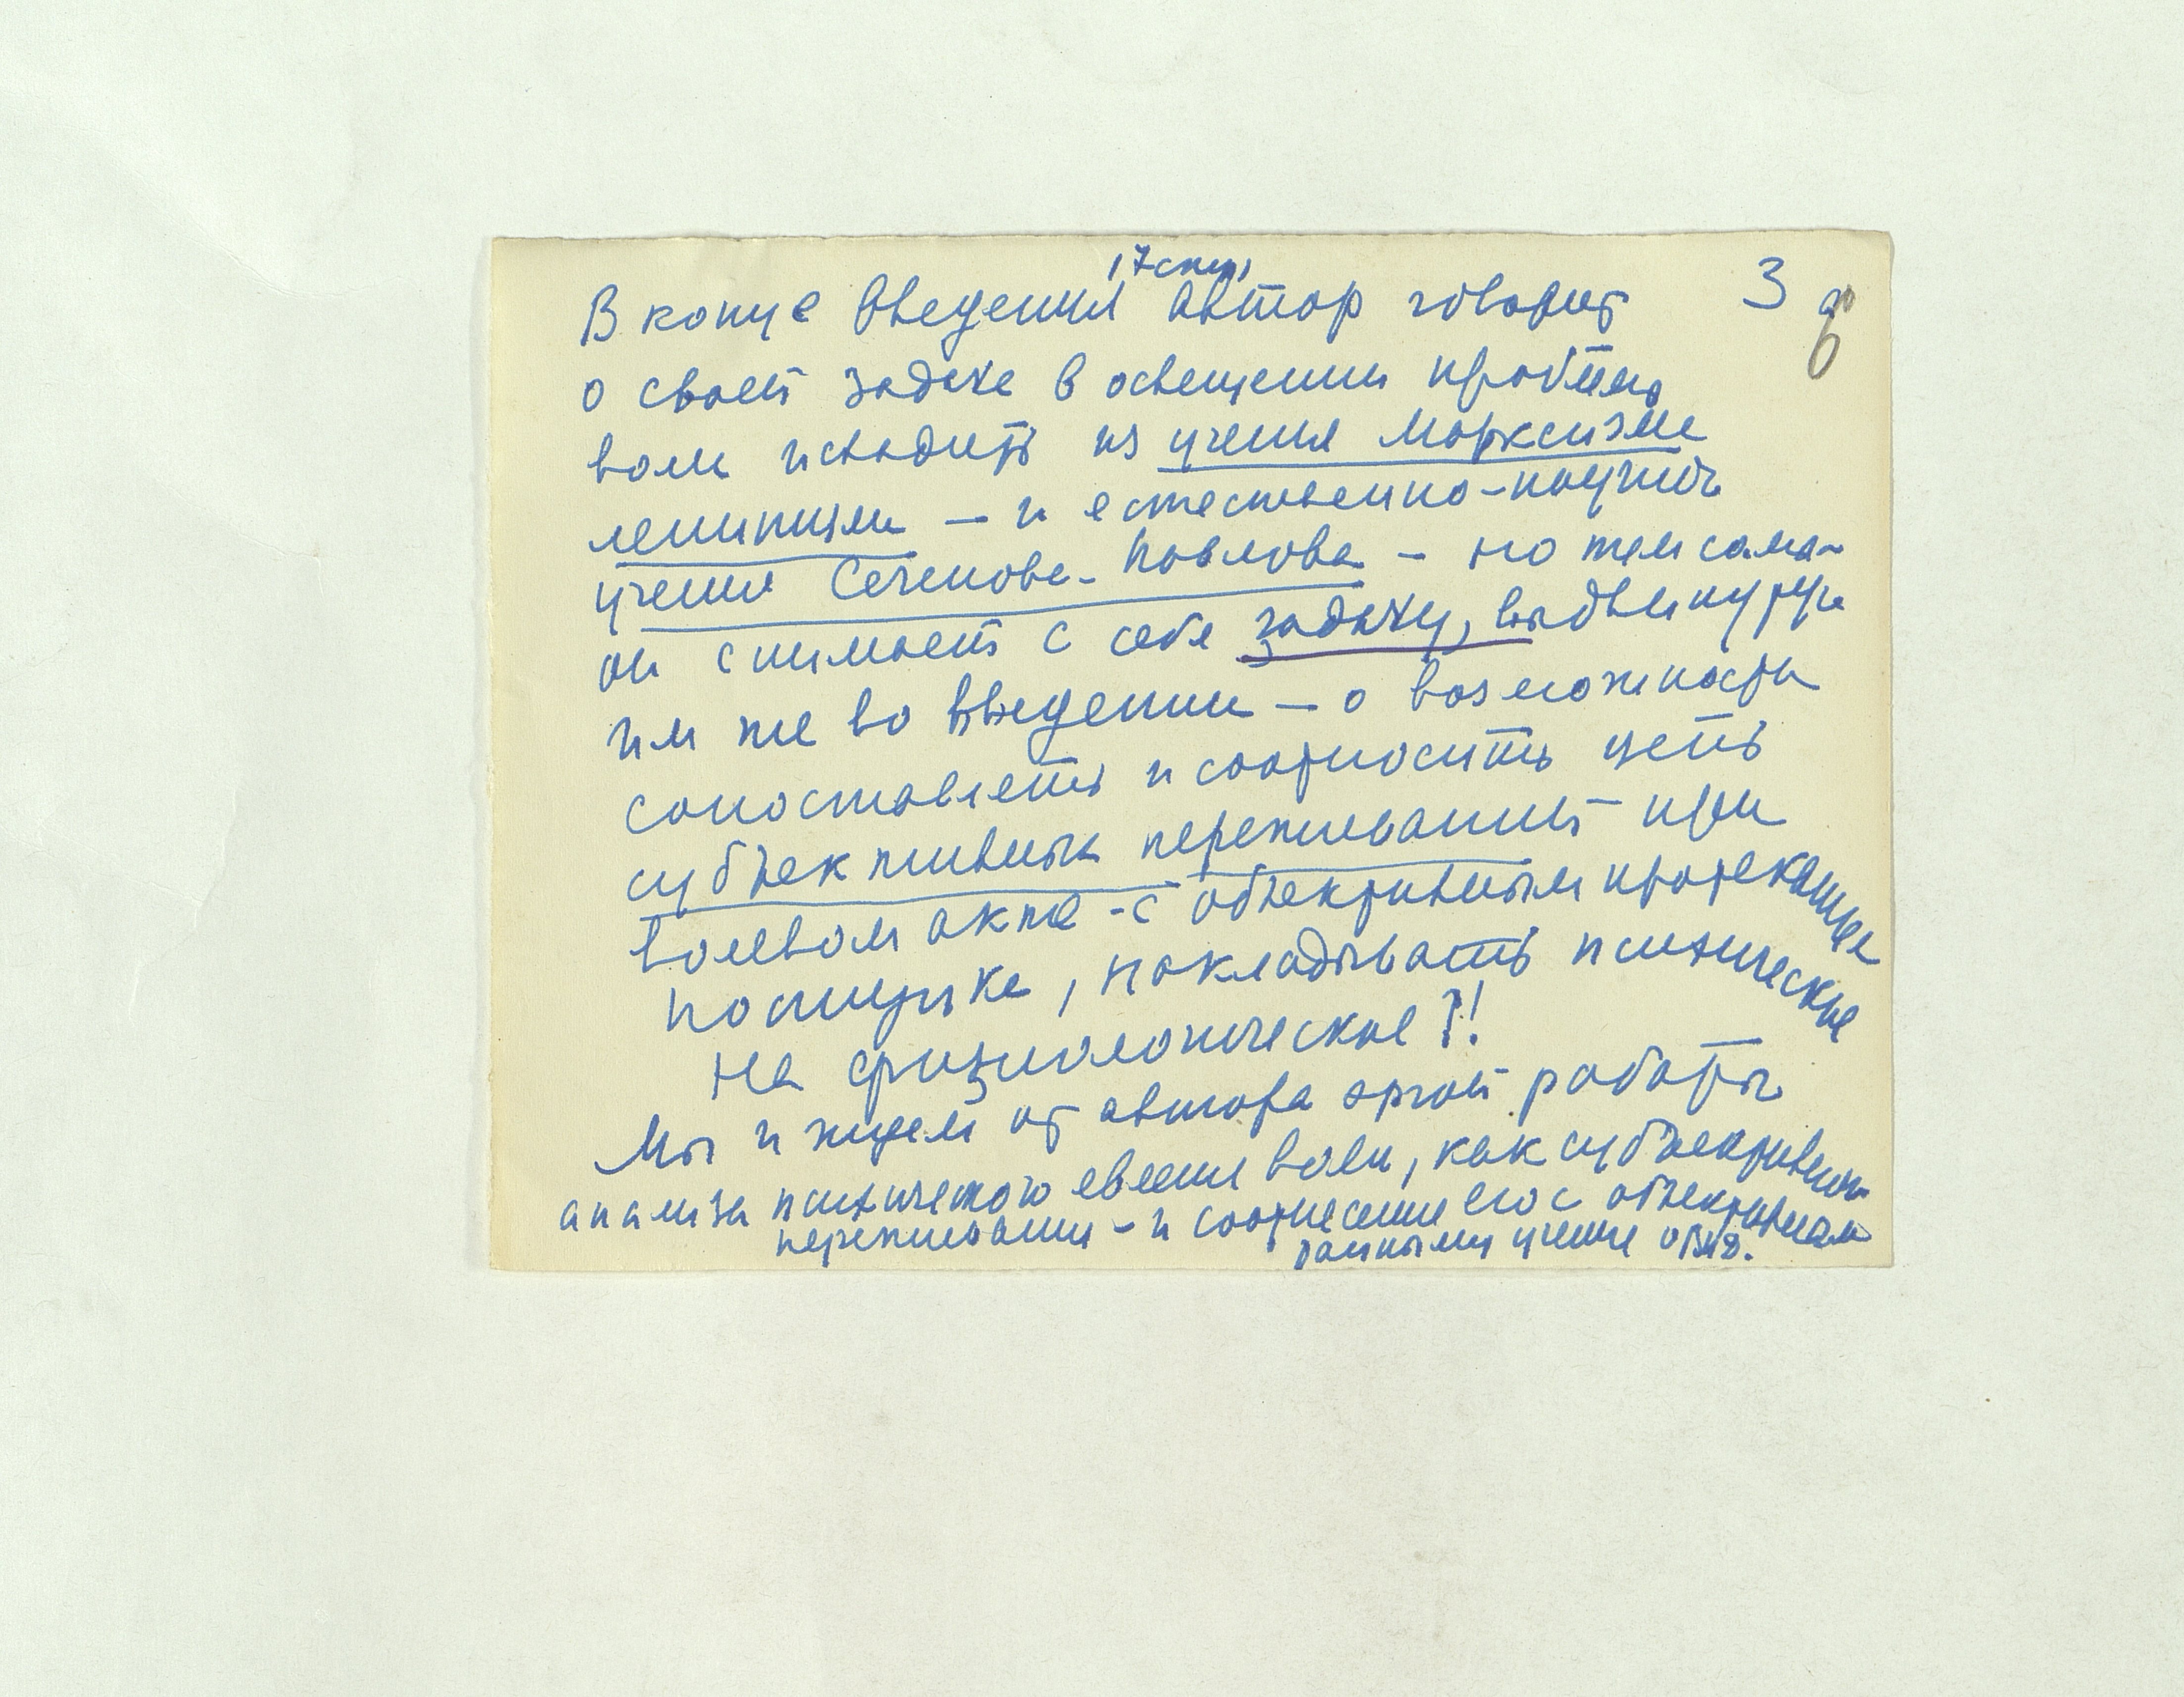 (7 стр.) 3
В конце Введения автор говорит
6
о своей задаче в освещении проблемы
воли исходить из учения Марксизма
ленинизма — и естественно-научного
учения Сеченова - Павлова — но тем самым
он снимает с себя задачу, выдвинутую
им же во введении — о возможности
сопоставлять и соотносить цепь
субъективных переживаний при
волевом акте - с объективным протеканием
поступка, накладывать психическое
на физиологическое?!
Мы и ждем от автора этой работы
анализа психического явления воли, как субъективного
переживания - и соотнесения его с объективными
данными учения о ВНД.